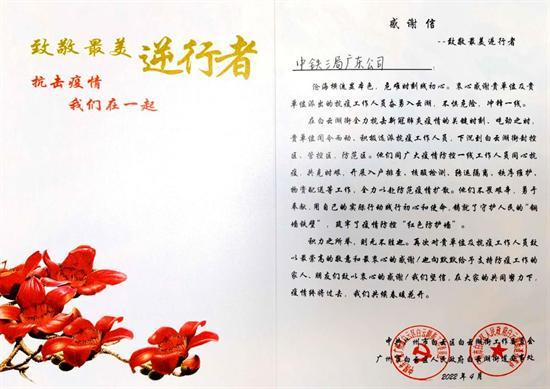 致敬最美逆行者
抗击疫情
我们在一起
感谢信
--致敬最美逆行者
中铁三局广东公司：
沧海横流显本色，危难时刻践初心。衷心感谢贵单位及贵
单位派出的抗疫工作人员奋勇入云湖，不惧危险，冲锋一线。
在白云湖街全力抗击新冠肺炎疫情的关键时刻、吃劲之时，
贵单位闻令而动、积极选派抗疫工作人员，下沉到白云湖街封控
区、管控区、防范区。他们同广大疫情防控一线工作人员同心抗
疫，共克时艰，开展入户排查、核酸检测、转运隔离、秩序维护、
物资配送等工作，全力以赴防范疫情扩散。他们不畏艰辛，勇于
奉献，用自己的实际行动践行初心和使命，铸就了守护人民的“铜
墙铁壁”，筑牢了疫情防控“红色防护墙”。
积力之所举，则无不胜也。再次对贵单位及抗疫工作人员致
以最崇高的敬意和最衷心的感谢！也向默默给予支持防疫工作的
家人、朋友们致以衷心的感谢！我们坚信，在大家的共同努力下，
疫情终将过去，我们共候春暖花开。
中共广州市白云区白云湖街道工作委员会
广州市白云区人民政府白云湖街道办事处
2022年4月